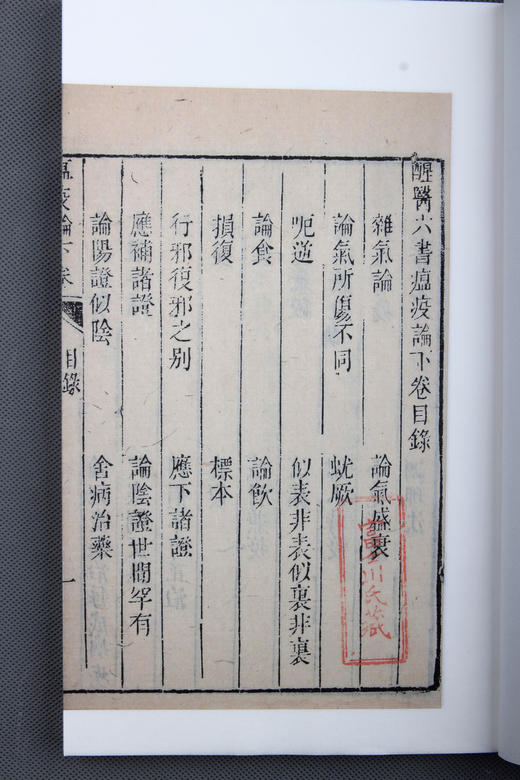 醒醫六書瘟疫論下卷目錄
雜氣論 論氣盛衰
論氣所傷不同 蚘厥
呃逆 似表非表似裏非裏
論食 論飲
損復 標本
行邪復邪之别 應下諸證
應補諸證 論陰證世間罕有
論陽證似陰 舍病治藥
瘟疫論下卷 目錄 一
川氏藏